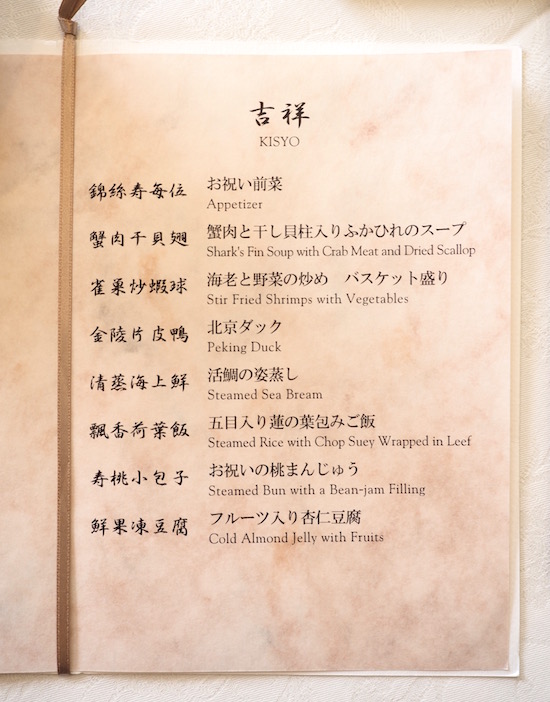 吉祥
KISYO
錦絲寿每位 お祝い前菜
Appetizer
蟹肉干貝翅 蟹肉と干し貝柱入りふかひれのスープ
Shark's Fin Soup with Crab Meat and Dried Scallop
雀巣炒蝦球 海老と野菜の炒め　バスケット盛り
Stir Fried Shrimps with Vegetables
金陵片皮鴨 北京ダック
Peking Duck
清蒸海上鮮 活鯛の姿蒸し
Steamed Sea Bream
飄香荷葉飯 五目入り蓮の葉包みご飯
Steamed Rice with Chop Suey Wrapped in Leef
寿桃小包子 お祝いの桃まんじゅう
Steamed Bun with a Bean-jam Filling
鮮果凍豆腐 フルーツ入り杏仁豆腐
Cold Almond Jelly with Fruits